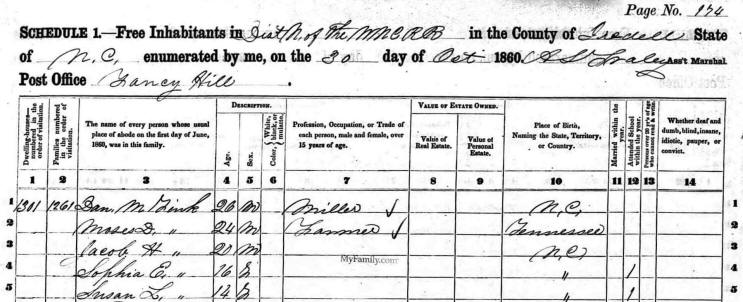 Page No. 174
SCHEDULE 1.—Free Inhabitants in Dist N of the WNCRR in the County of Iredell State
of N.C. enumerated by me, on the 30 day of Oct 1860. Ass't Marshal
Post Office Fancy Hill.
DESCRIPTION. VALUE OF ESTATE OWNED.
Dwelling-houses—numbered in the order of visitation. Families numbered in the order of visitation. The name of every person whose usual place of abode on the first day of June, 1860, was in this family. Age. Sex. Color, White, black, or mulatto. Profession, Occupation, or Trade of each person, male and female, over 15 years of age. Value of Real Estate. Value of Personal Estate. Place of Birth, Naming the State, Territory, or Country. Married within the year. Attended School within the year. Persons over 20 y'rs of age who cannot read & write. Whether deaf and dumb, blind, insane, idiotic, pauper, or convict.
1 2 3 4 5 6 7 8 9 10 11 12 13 14
1 1301 1261 Dan. M. Zink 26 m Miller N.C. 1
2 Moses D. " 24 m Farmer Tennessee 2
3 Jacob H. " 20 m N.C. 3
MyFamily.com
4 Sophia E. " 16 f " 1 4
5 Susan L. " 14 f " 1 5